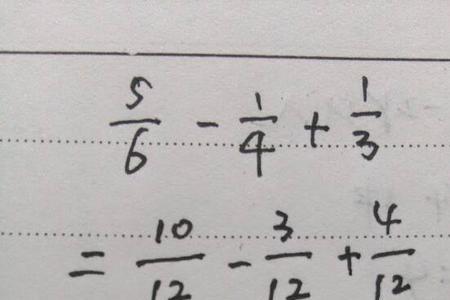 5/6 - 1/4 + 1/3
= 10/12 - 3/12 + 4/12